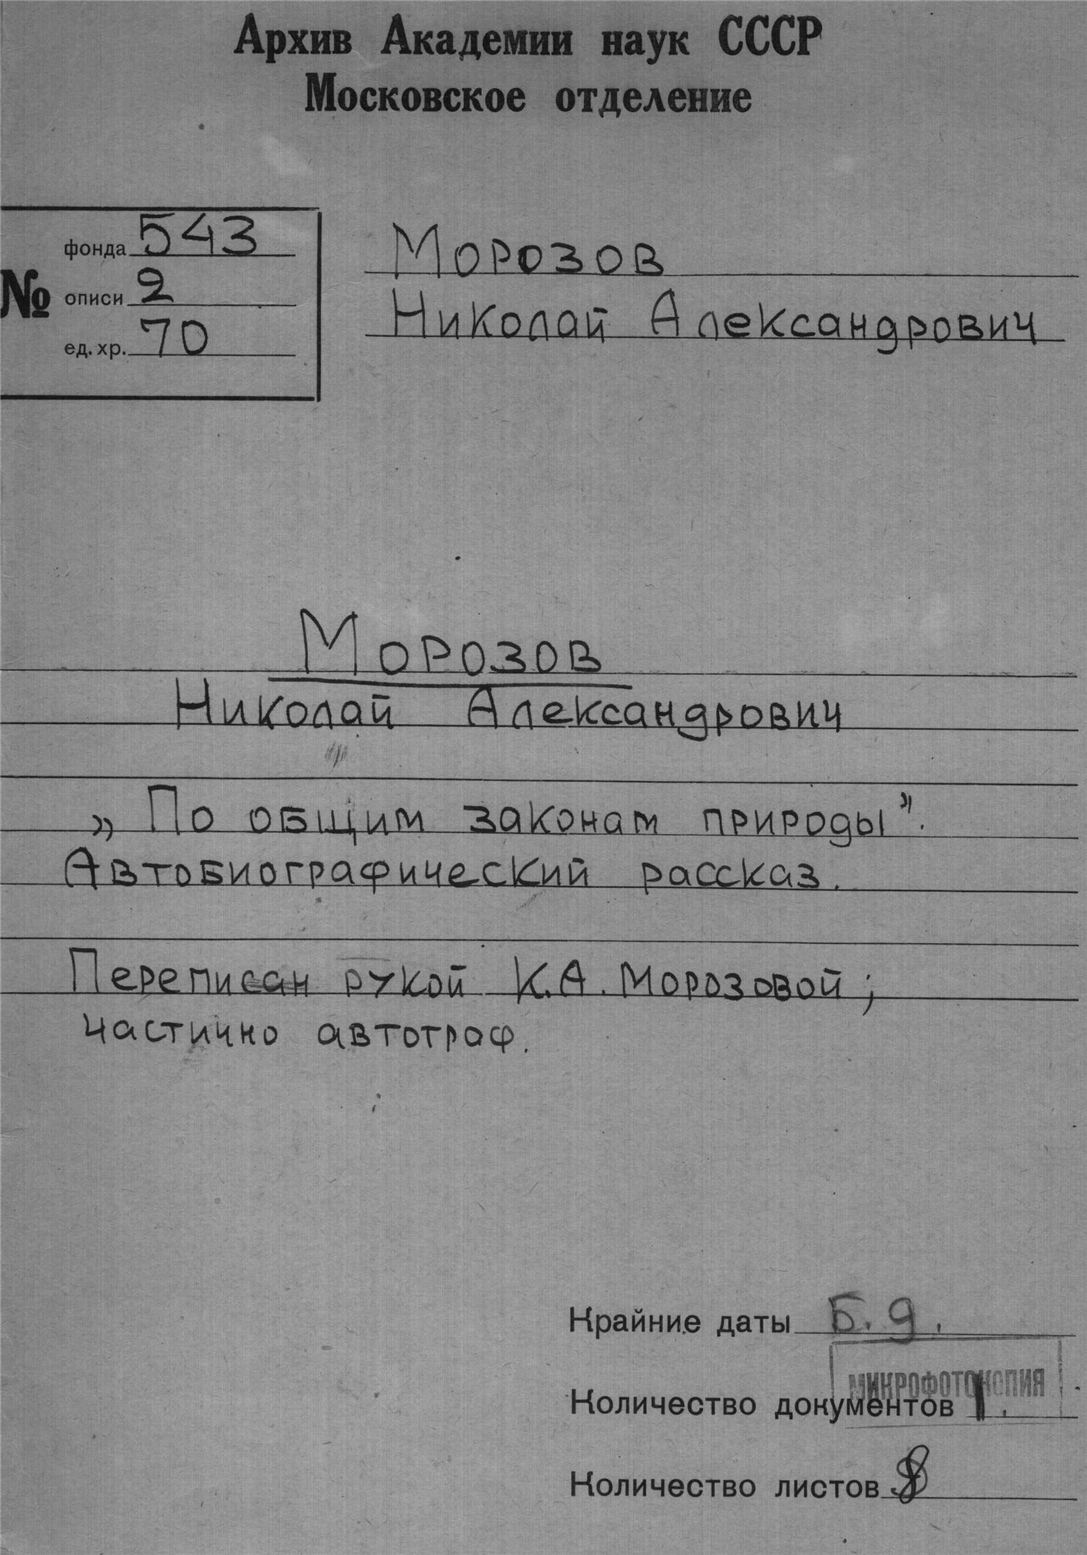 Архив Академии наук СССР
Московское отделение
№
фонда 543
описи 2
ед. хр. 70
Морозов
Николай Александрович
Морозов
Николай Александрович
„По общим законам природы".
Автобиографический рассказ.
Переписан рукой К.А. Морозовой;
частично автограф.
Крайние даты Б.д.
МИКРОФОТОКОПИЯ
Количество документов 1.
Количество листов 8